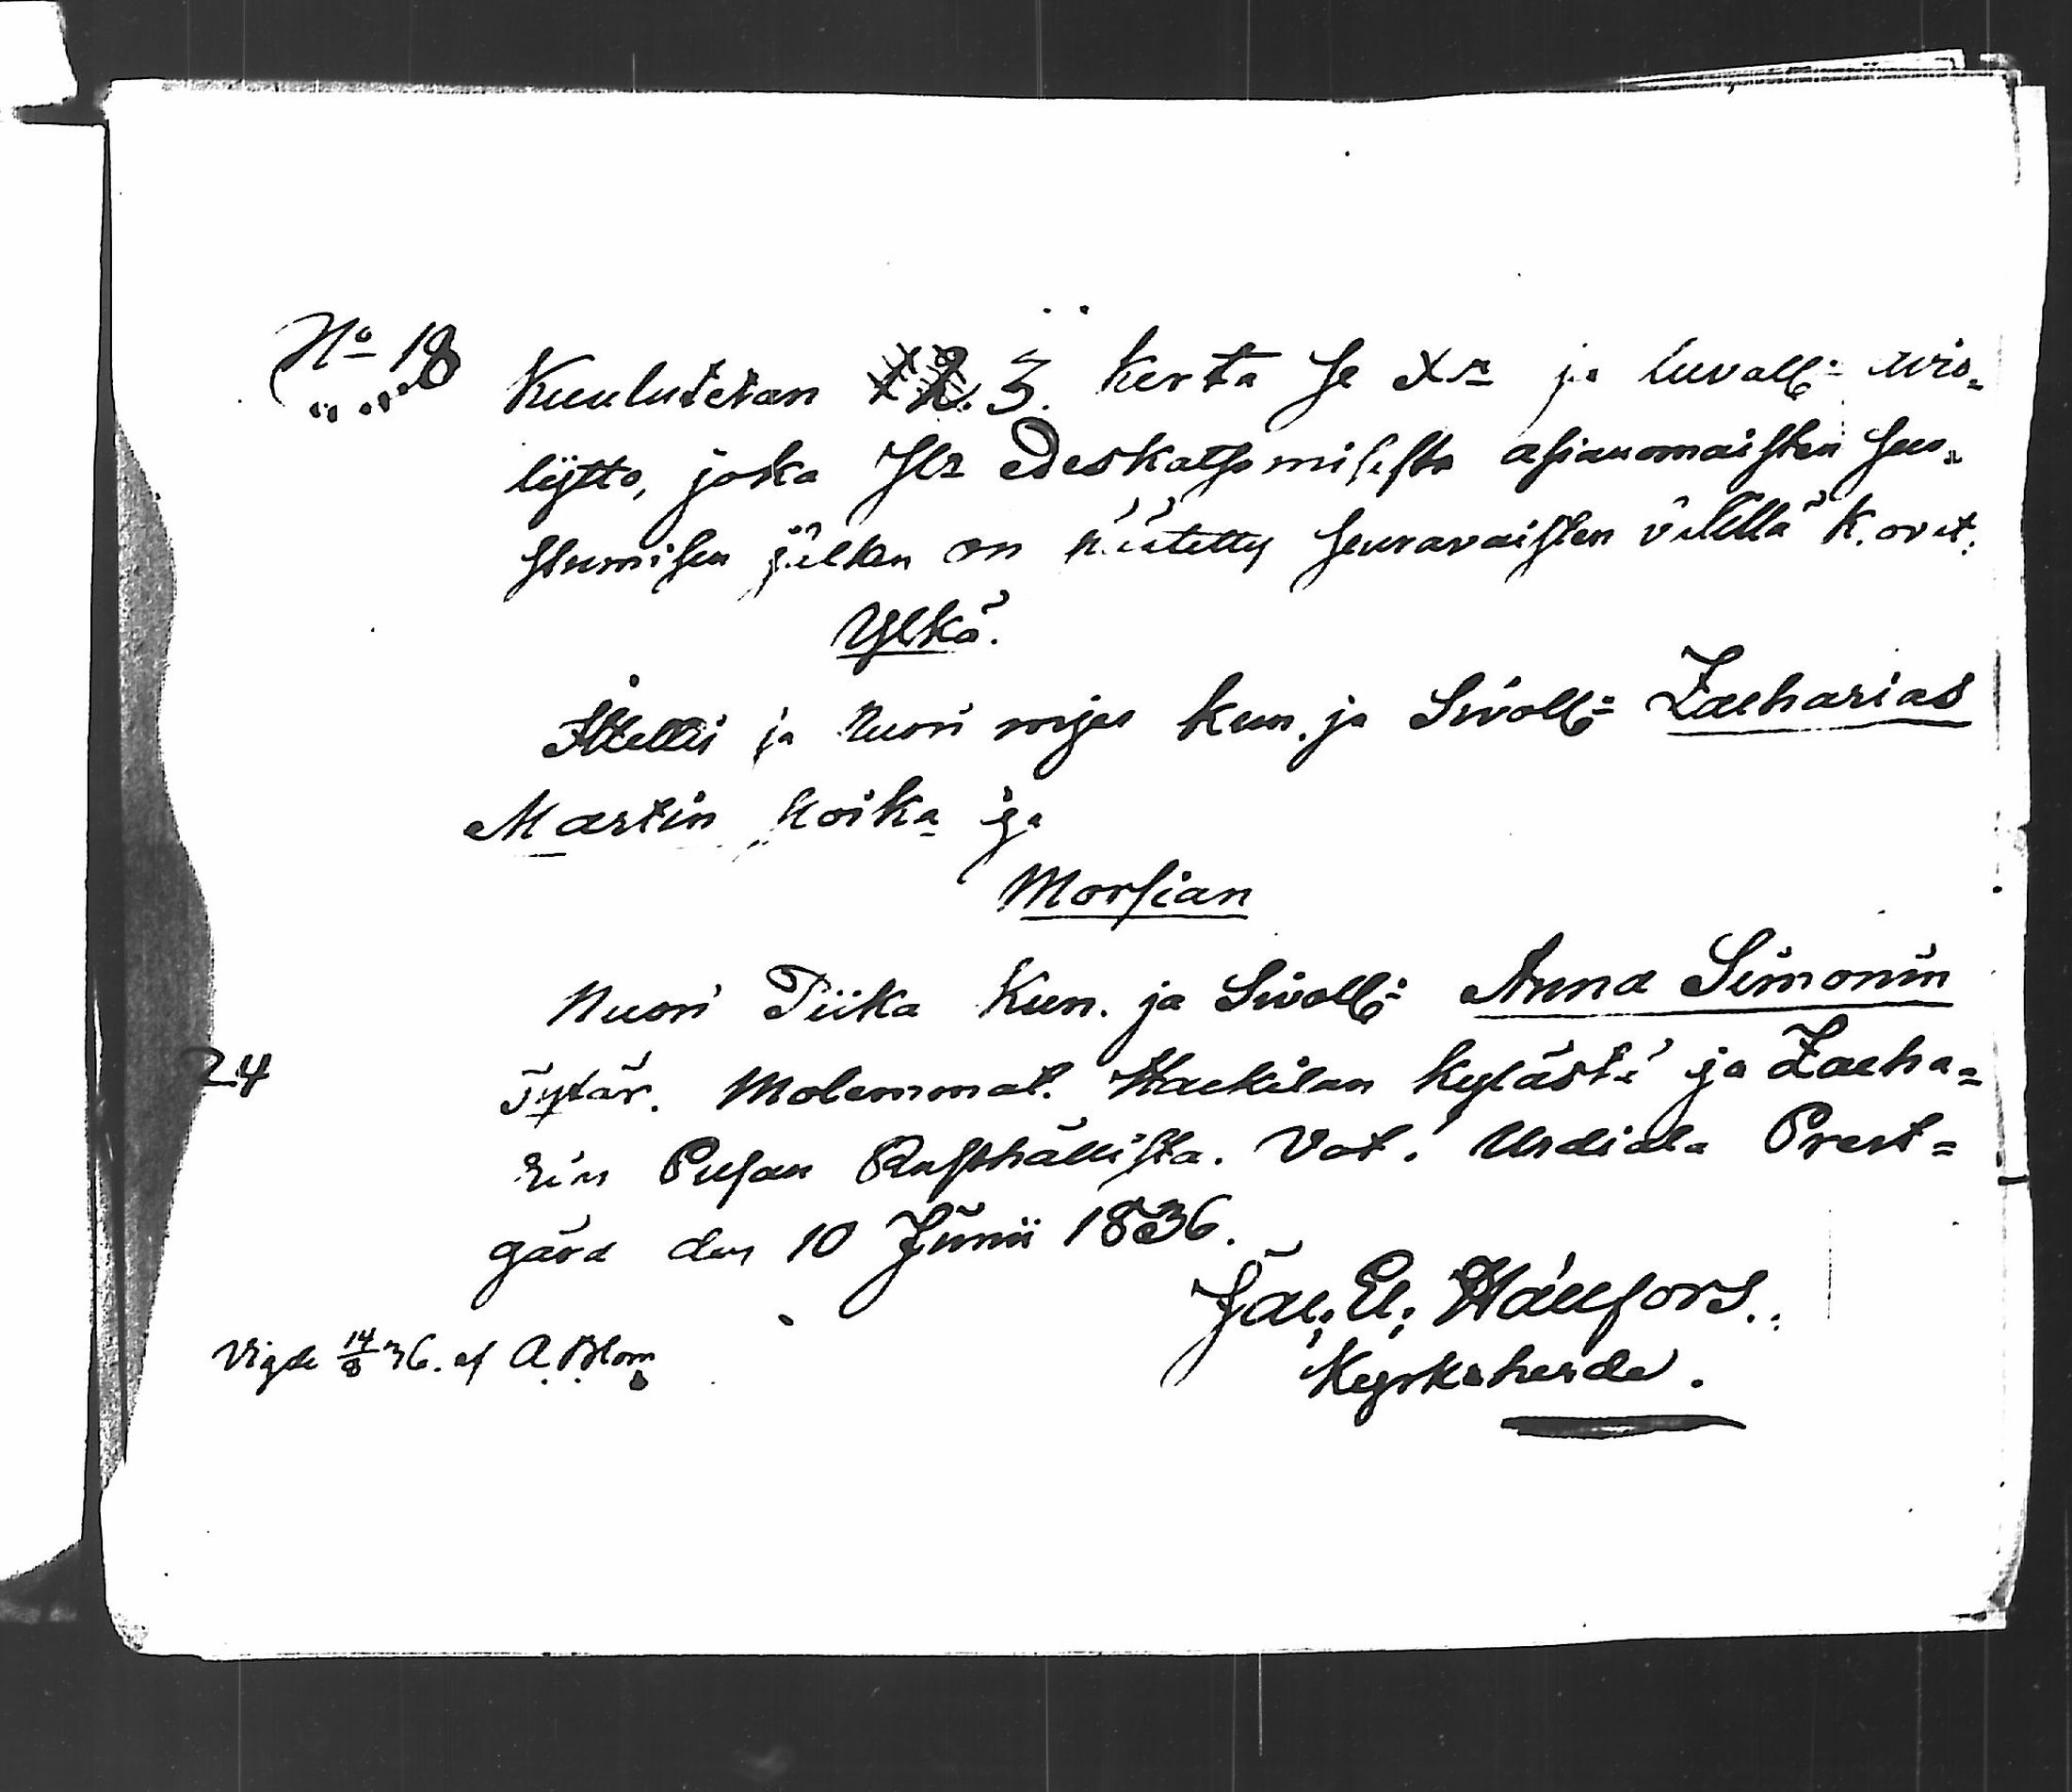 No 18
Kuulutetan 1. 2. 3. kerta se Xn ja luvall: avio=
liytto, joka Hr edeskatsomisesta asianomaisten suo=
stumisen jälken on päätetty seuravaisten välillä K. ovat.
Ylkä.
Itelli ja Nuori mjes kun. ja Sivoll: Zacharias
Martin poika ja
Morsian
Nuori Piika Kun. ja Sivoll: Anna Simonin
24
Tytär. Molemmat. Hackilan kylästä ja Zacha=
rias Rusthällista. Vot. Urdiala Prest=
gård den 10 Junii 1836.
Jac. El. Hällfors.
Kyrkoherde.
Vigde 14/8 36. af A. Blom